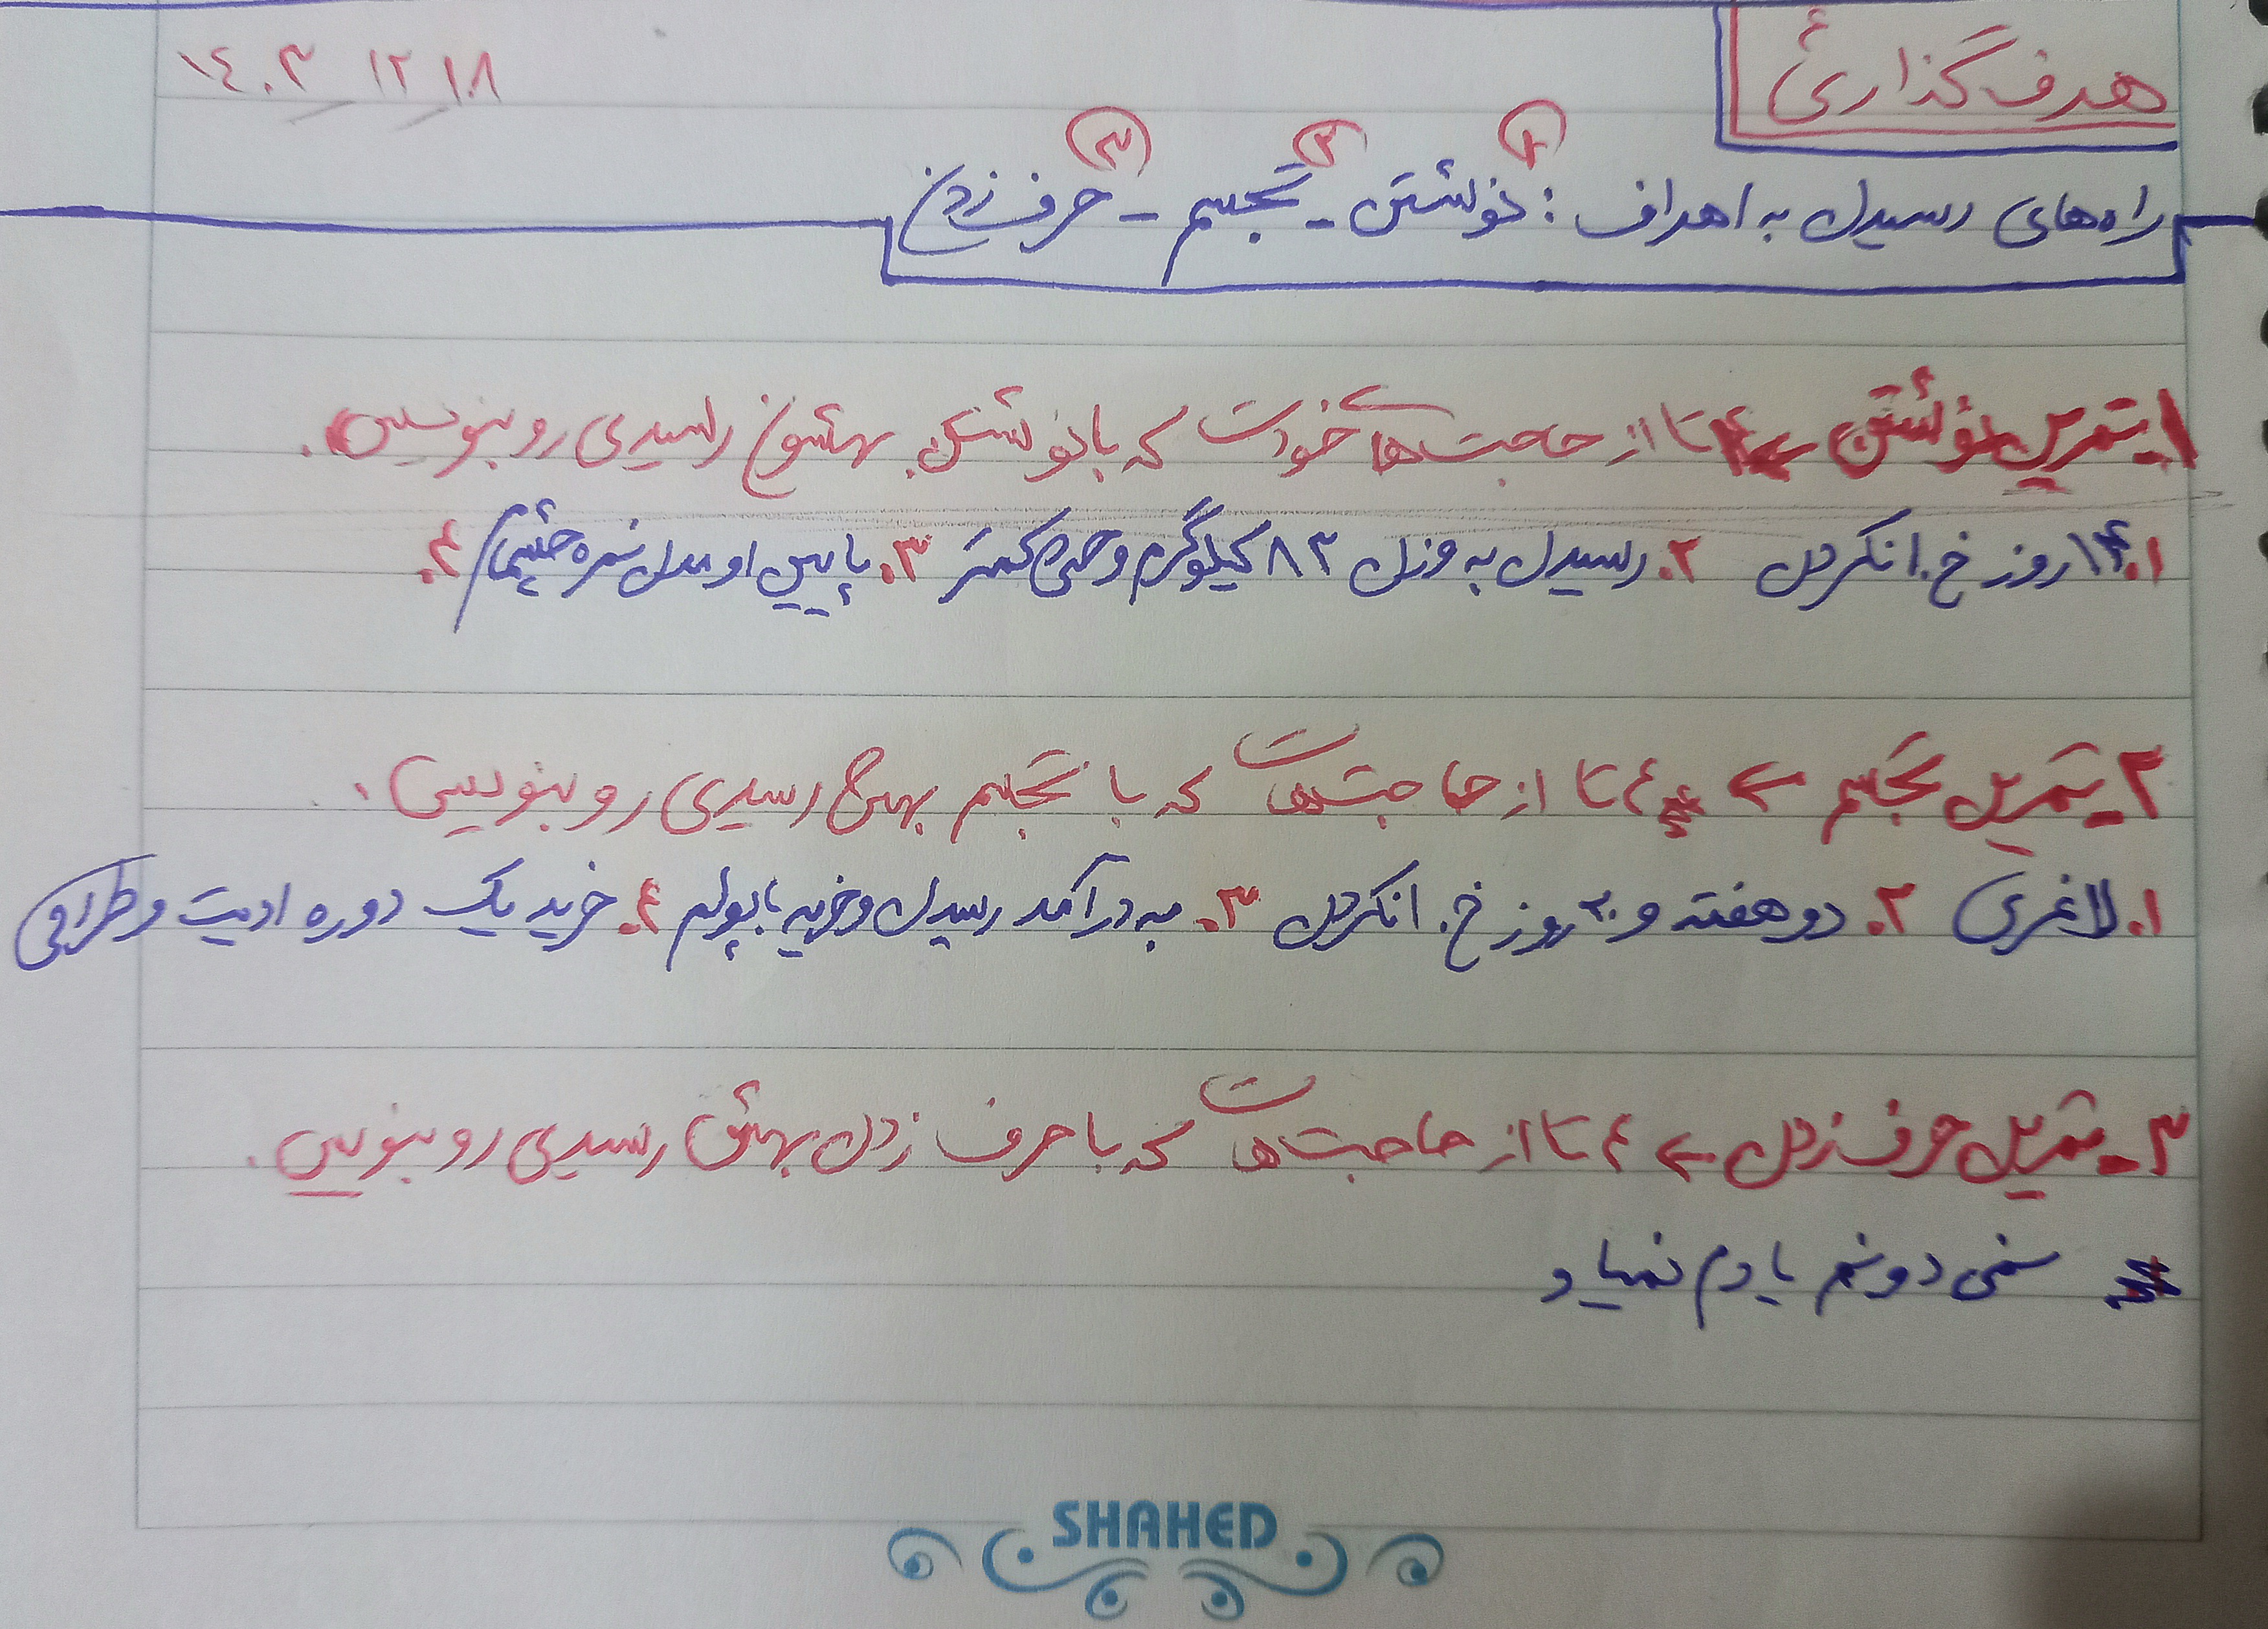 هدف گذاری
۱۴۰۳ ۱۲ ۱۸
۱ ۲ ۳
راه‌های رسیدن به اهداف : نوشتن - تجسم - حرف زدن
۱ـ تمرین نوشتن ← ۴ تا از حاجت‌های خودت که با نوشتن بهشون رسیدی رو بنویس.
۱. ۱۴ روز خ.ا نکردن ۲. رسیدن به وزن ۸۳ کیلوگرم و حتی کمتر ۳. پایین اومدن نمره چشمام ۴.
۲ـ تمرین تجسم ← ۴ تا از حاجت‌هات که با تجسم بهش رسیدی رو بنویس.
۱. لاغری ۲. دو هفته و ۲۰ روز خ.ا نکردن ۳. به درآمد رسیدن و خرید با پولم ۴. خرید یک دوره ادیت و طراحی
۳ـ تمرین حرف زدن ← ۴ تا از حاجت‌هات که با حرف زدن بهش رسیدی رو بنویس.
نمی دونم یادم نمیاد
SHAHED